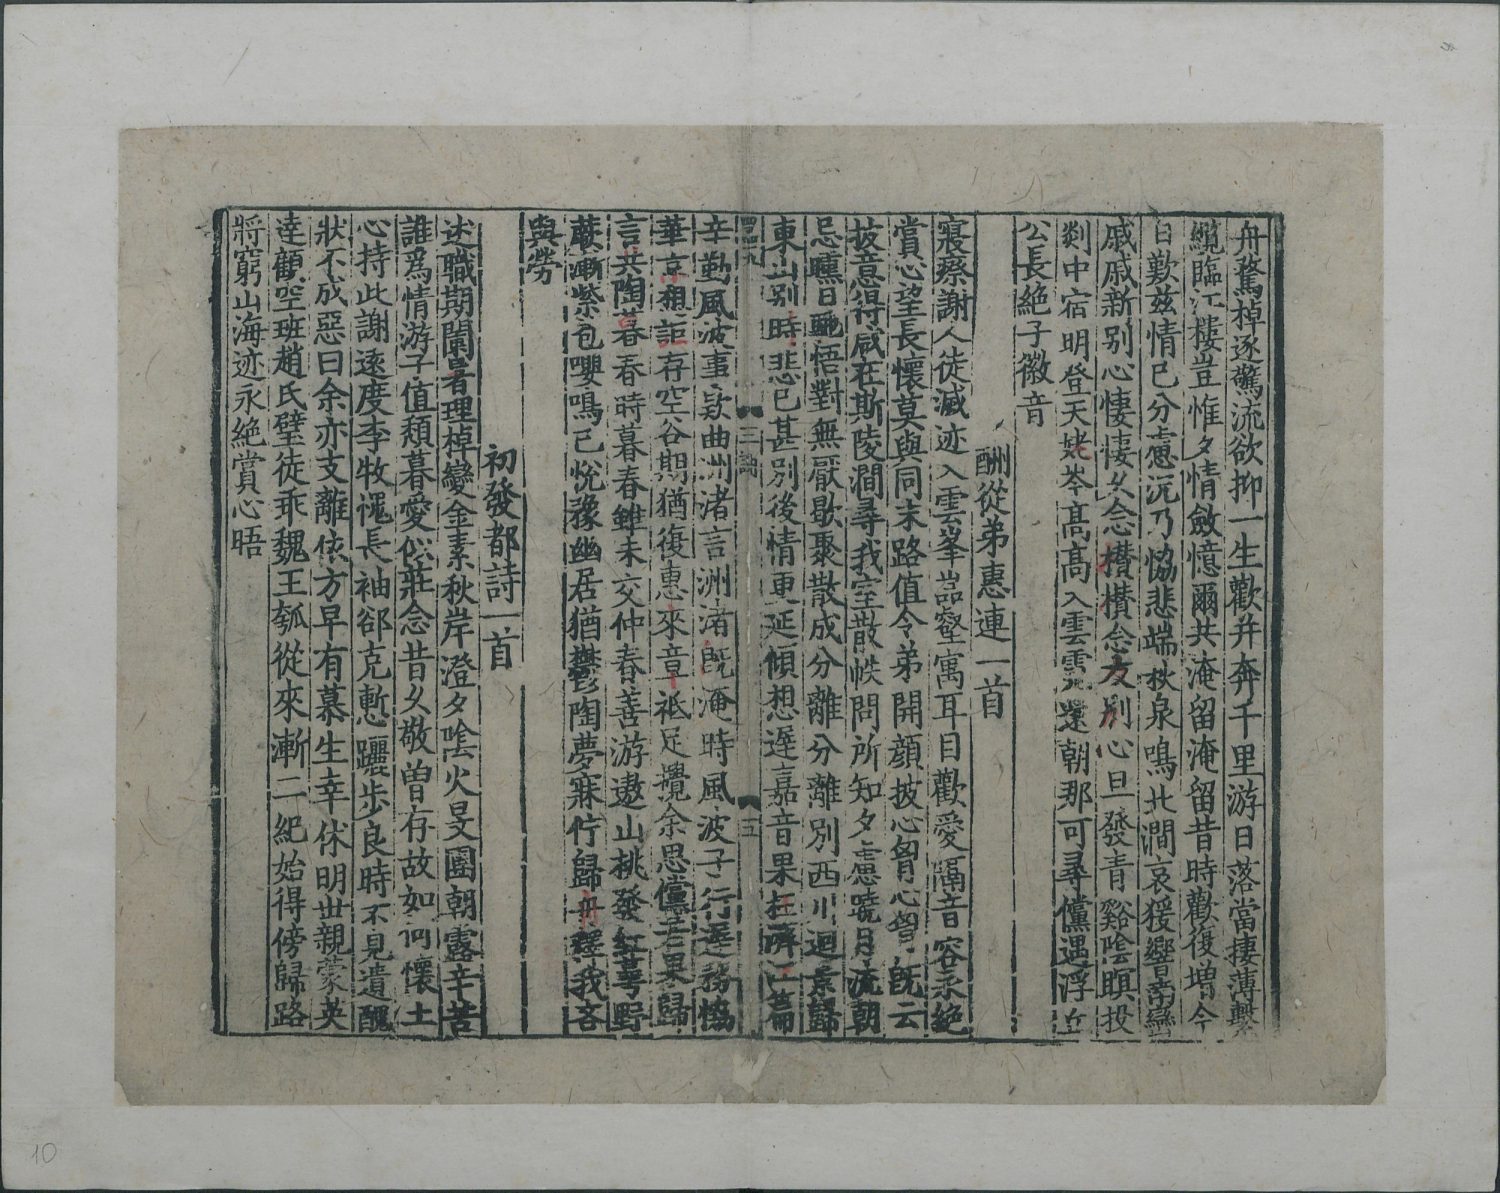 舟鶩棹逐驚流欲抑一生歡并奔千里游日落當棲薄繫
纜臨江樓豈惟夕情斂憶爾共淹留淹留昔時歡復增今
日歎茲情已分慮況乃恊悲端秋泉鳴北澗哀猨響南巒
戚戚新别心悽悽久念攢攢念攻别心旦發青谿陰暝投
剡中宿明登天姥岑高高入雲霓還朝那可尋儻遇浮丘
公長絶子徽音
酬從弟惠連一首
寢瘵謝人徒滅迹入雲峯嵓壑寓耳目歡愛隔音容永絶
賞心望長懷莫與同末路值令弟開顔披心胷心胷既云
披意得咸在斯陵澗尋我室散帙問所知夕慮曉月流朝
忌曛日馳悟對無厭歇聚散成分離分離別西川迴景歸
東山别時悲已甚别後情更延傾想遲嘉音果枉濟江篇
四四九
三詩
五
辛勤風波事欵曲洲渚言洲渚既淹時風波子行遲務恊
華京想詎存空谷期猶復惠來章祗足攪余思儻若果歸
言共陶暮春時暮春雖未交仲春善游遨山桃發紅萼野
蕨漸紫包嚶鳴已恱豫幽居猶鬱陶夢寐佇歸舟釋我吝
與勞
初發都詩一首
述職期闌暑理棹變金素秋岸澄夕陰火旻團朝露辛苦
誰爲情游子值頽暮愛似莊念昔久敬曽存故如何懷土
心持此謝逺度李牧愧長袖郤克慙躧步良時不見遺醜
狀不成惡曰余亦支離依方早有慕生幸休明世親蒙英
逹顧空班趙氏璧徒乖魏王瓠從來漸二紀始得傍歸路
將窮山海迹永絶賞心晤
10